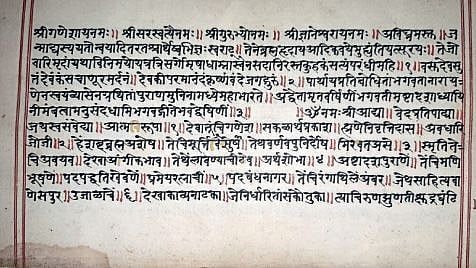 श्रीगणेशायनमः॥श्रीसरस्वत्यैनमः॥श्रीगुरुभ्योनमः॥श्रीज्ञानेश्वरायनमः॥अविघ्नमस्तु॥ज
न्माद्यस्ययतोन्वयादितरतश्चार्थेष्वभिज्ञःस्वराट्॥तेनेब्रह्महृदायआदिकवयेमुह्यंतियत्सूरयः॥तेजो
वारिमृदांयथाविनिमयोयत्रत्रिसर्गोमृषाधाम्नास्वेनसदानिरस्तकुहकंसत्यंपरंधीमहि॥१॥वसुदेवसु
तंदेवंकंसचाणूरमर्दनं॥देवकीपरमानंदंकृष्णंवंदेजगद्गुरुं॥२॥पार्थायप्रतिबोधितांभगवतानाराय
णेनस्वयंव्यासेनग्रथितांपुराणमुनिनामध्येमहाभारते॥अद्वैतामृतवर्षिणींभगवतीमष्टादशाध्यायि
नीमंबत्वामनुसंदधामिभगवद्गीतेभवद्वेषिणीं॥३॥ॐनमःश्रीआद्या॥वेदप्रतिपाद्या॥
जयस्वसंवेद्या॥आत्मरूपा॥१॥देवातूंचिगणेश॥सकळार्थप्रकाश॥म्हणेनिवृत्तिदास॥अवधारि
जोजी॥२॥हेंशब्दब्रह्मअशेष॥तेचिमूर्तिसुवेष॥तेथवर्णवपुनिर्दोष॥मिरवतअसे॥३॥स्मृतिते
चिअवयव॥देखाआंगीकभाव॥तेथेंलावण्याचीठेव॥अर्थशोभा॥४॥अष्टादशपुराणें॥तेचिमणि
भूषणें॥पदपद्धतिखेवणें॥प्रमेयरत्नाची॥५॥पदबंधनागर॥तेंचिरंगाथिलेंअंबर॥जेथसाहित्यवा
णेंसपुर॥उजाळाचें॥६॥देखाकाव्यनाटका॥जेनिर्धारितांसकौतुका॥त्याचिरुणझुणतीक्षुद्रघंटि